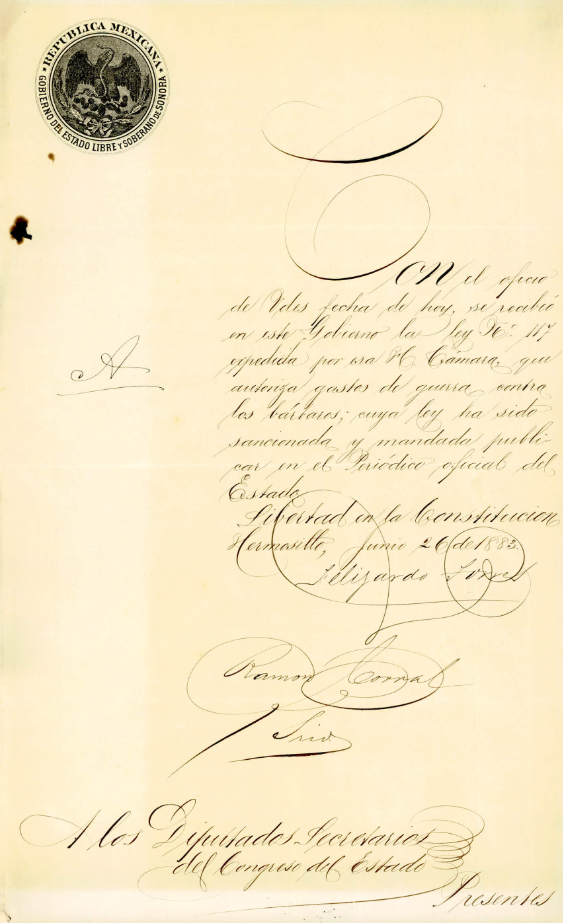 REPUBLICA MEXICANA
GOBIERNO DEL ESTADO LIBRE Y SOBERANO DE SONORA
CON el oficio
de Vdes fecha de hoy, se recibió
en este Gobierno la ley No. 117
expedida por esa H. Cámara, que
autoriza gastos de guerra contra
los bárbaros; cuya ley ha sido
sancionada y mandada publi-
car en el Periódico oficial del
Estado.
A
Libertad en la Constitucion
Hermosillo, Junio 26 de 1883.
Felizardo Torres
Ramon Corral
Srio.
A los Diputados Secretarios
del Congreso del Estado
Presentes